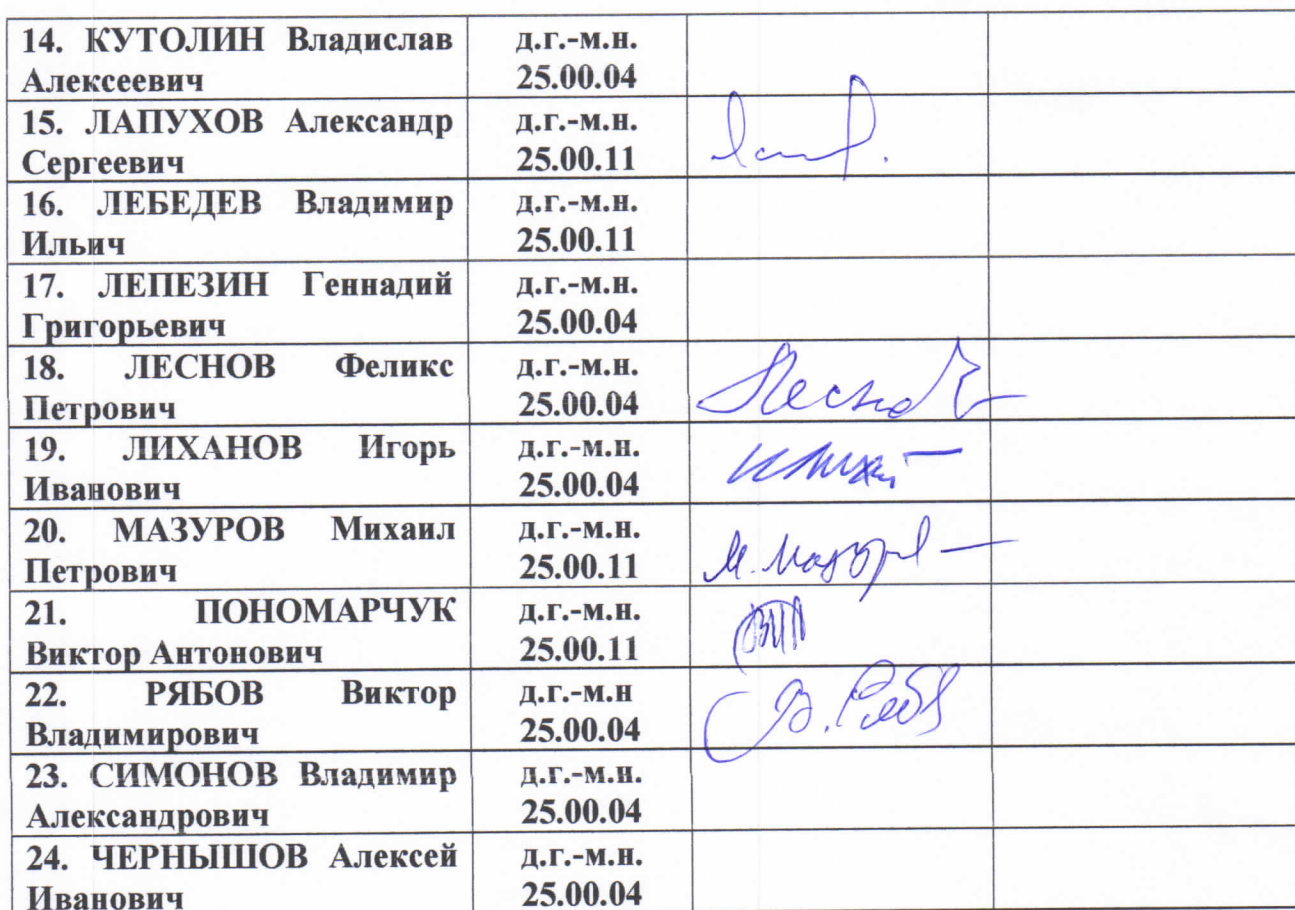 14. КУТОЛИН Владислав
Алексеевич
д.г.-м.н.
25.00.04
15. ЛАПУХОВ Александр
Сергеевич
д.г.-м.н.
25.00.11
16. ЛЕБЕДЕВ Владимир
Ильич
д.г.-м.н.
25.00.11
17. ЛЕПЕЗИН Геннадий
Григорьевич
д.г.-м.н.
25.00.04
18. ЛЕСНОВ Феликс
Петрович
д.г.-м.н.
25.00.04
19. ЛИХАНОВ Игорь
Иванович
д.г.-м.н.
25.00.04
20. МАЗУРОВ Михаил
Петрович
д.г.-м.н.
25.00.11
21. ПОНОМАРЧУК
Виктор Антонович
д.г.-м.н.
25.00.11
22. РЯБОВ Виктор
Владимирович
д.г.-м.н
25.00.04
23. СИМОНОВ Владимир
Александрович
д.г.-м.н.
25.00.04
24. ЧЕРНЫШОВ Алексей
Иванович
д.г.-м.н.
25.00.04